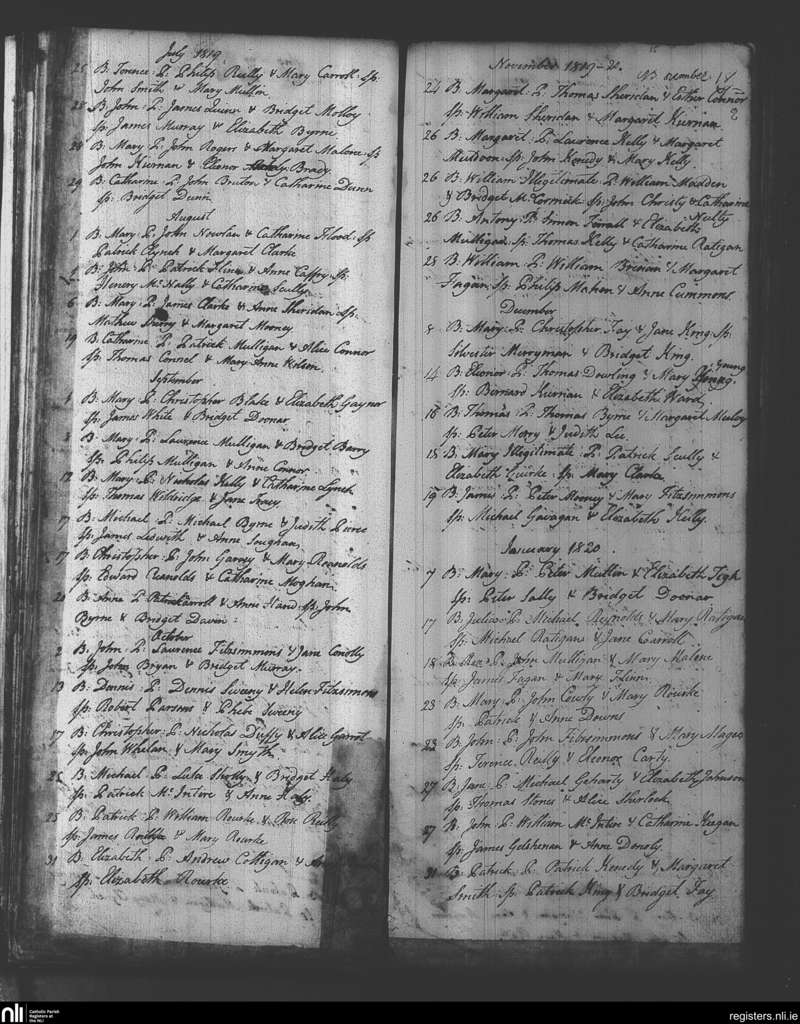 July 1819
25 B. Terence P. Philip Reilly & Mary Carroll Sp.
John Smith & Mary Mullin
25 B. John P. James Quinn & Bridget Molloy
Sp. James Murray & Elizabeth Byrne
28 B. Mary P. John Rogers & Margaret Malone Sp.
John Kiernan & Elenor Brady
29 B. Catharine P. John Bruton & Catharine Dunn
Sp. Bridget Dunn
August
1 B. Mary P. John Nowlan & Catharine Flood Sp.
Patrick Clynch & Margaret Clarke
B. John P. Patrick & Anne Caffry Sp.
Henery McNally & Catharine Scully
6 B. Mary P. James Clarke & Anne Sheridan Sp.
Mathew & Margaret Mooney
19 B. Catharine P. Patrick Mulligan & Alice Connor
Sp. Thomas Connel & Mary Anne Wilson
September
1 B. Mary P. Christopher Blake & Elizabeth Gaynor
Sp. James White & Bridget Doonar
B. Mary P. Laurence Mulligan & Bridget Barry
Sp. Philip Mulligan & Anne Connor
12 B. Mary P. Nicholas Kelly & Catharine Lynch
Sp. Thomas & Jane Tracy
17 B. Michael P. Michael Byrne & Judith
Sp. James Ledwith & Anne
17 B. Christopher P. John Garvey & Mary Reanolds
Sp. Edward Reanolds & Catharine Moghan
20 B. Anne P. Patrick Carroll & Anne Hand Sp. John
Byrne & Bridget
October
2 B. John P. Laurence Fitzsimmons & Jane Conolly
Sp. John Bryan & Bridget Murray
13 B. Dennis P. Dennis Sweeny & Helen Fitzsimmons
Sp. Robert Parsons & Phebe Sweeny
17 B. Christopher P. Nicholas Duffy & Alice Garrot
Sp. John Whelan & Mary Smyth
25 B. Michael P. Luke & Bridget Haly
Sp. Patrick McIntire & Anne Haly
25 B. Patrick P. William Rourke & Rose Reilly
Sp. James & Mary Rourke
31 B. Elizabeth P. Andrew Coltigan &
Sp. Elizabeth Rourke
November 1819-20.
18
2
24 B. Margaret P. Thomas Sheridan & Esther Connor
Sp. William Sheridan & Margaret Kiernan
26 B. Margaret P. Laurence Kelly & Margaret
Muldoon Sp. John Kenedy & Mary Kelly
26 B. William Illegitimate P. William
& Bridget McCormick Sp. John Christy & Catharine
Nulty
26 B. Antony P. Simon Farrall & Elizabeth
Mulligan Sp. Thomas Kelly & Catharine Ratigan
28 B. William P. William Brenan & Margaret
Fagan Sp. Philip Mahon & Anne Cummons
December
8 B. Mary P. Christopher Fay & Jane King Sp.
Silvester Merryman & Bridget King
14 B. Elenor P. Thomas Dowling & Mary Young
Sp. Bernard Kiernan & Elizabeth Ward
16 B. Thomas P. Thomas Byrne & Margaret
Sp. Peter & Judith Lee
18 B. Mary Illegitimate P. Patrick Scully &
Elizabeth Sp. Mary Clarke
19 B. James P. Peter Mooney & Mary Fitzsimmons
Sp. Michael Gavagan & Elizabeth Kelly
January 1820
7 B. Mary P. Peter Mullin & Elizabeth
Sp. Peter Lally & Bridget Doonar
17 B. Julia P. Michael Reynolds & Mary Ratigan
Sp. Michael Ratigan & Jane Carroll
18 B. P. John Mulligan & Mary Malone
Sp. James Fagan & Mary Flinn
23 B. Mary P. John & Mary Rourke
Sp. Patrick & Anne Downs
23 B. John P. John Fitzsimmons & Mary Magee
Sp. Terence Reilly & Elenor Carty
27 B. Jane P. Michael Geharty & Elizabeth Johnson
Sp. Thomas & Alice Sherlock
27 B. John P. William McIntire & Catharine Keegan
Sp. James Gelshenan & Anne
31 B. Patrick P. Patrick Kenedy & Margaret
Smith Sp. Patrick King & Bridget Fay
nli Catholic Parish
Registers at
the NLI
registers.nli.ie